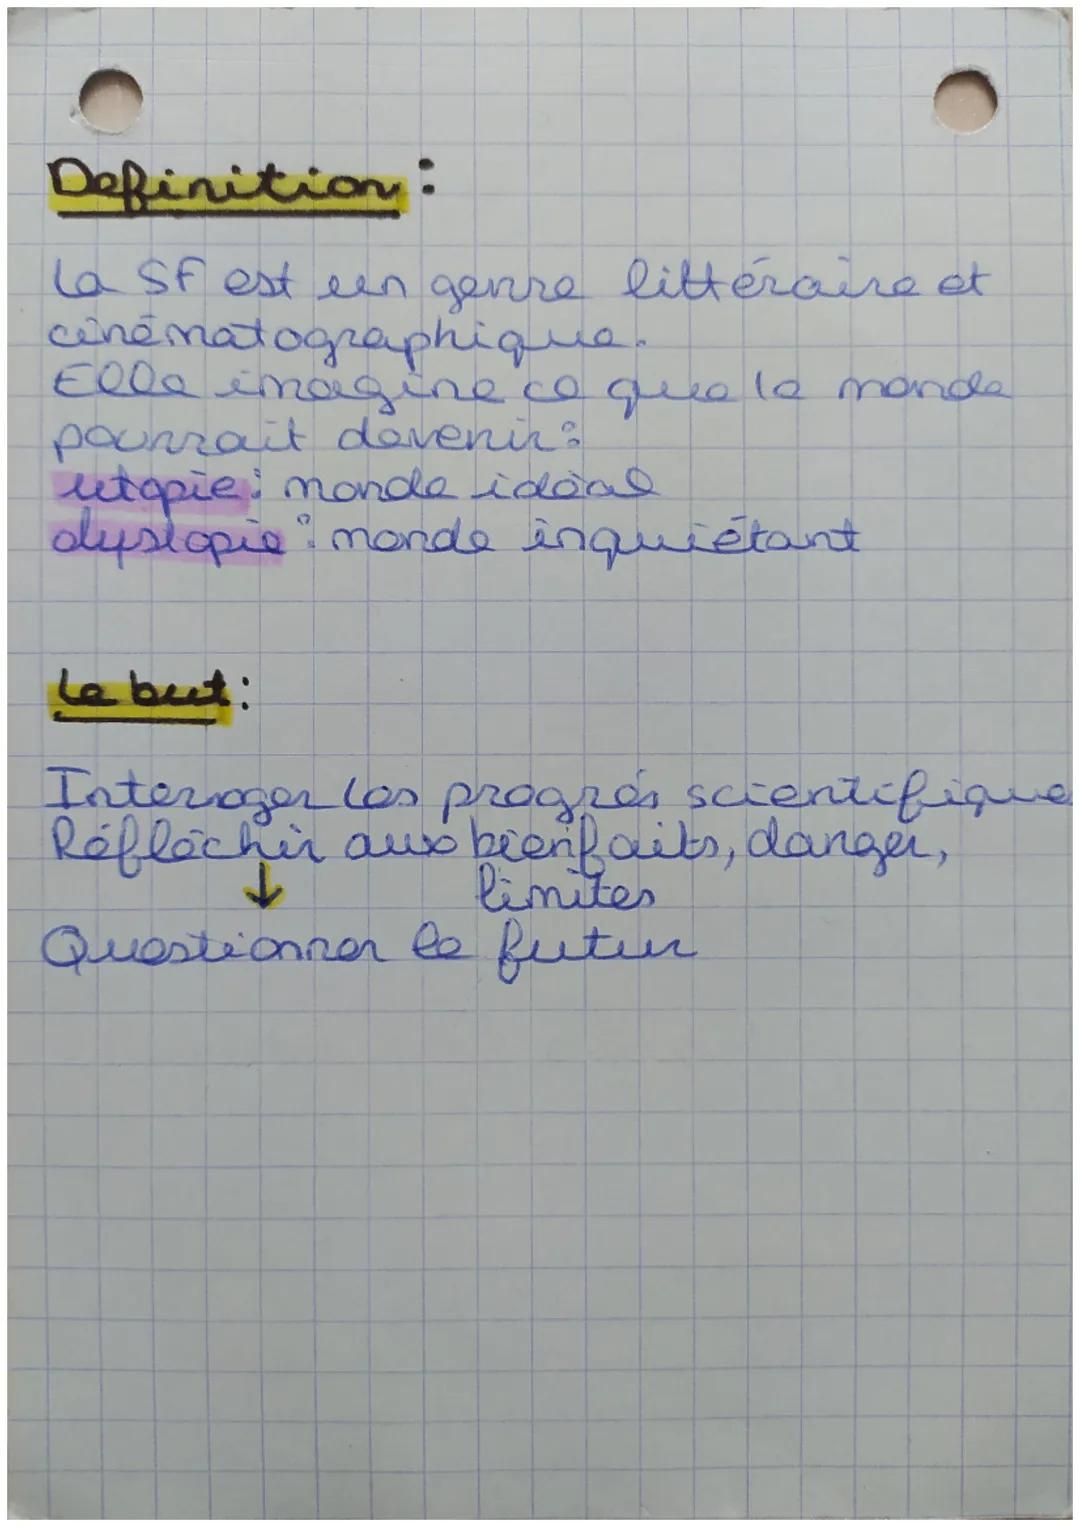 Definition :
la SF est un genre littéraire et
cinématographique.
Elle imagine ce que le monde
pourrait devenir :
utopie : monde idéal
dystopie : monde inquiétant
Le but :
Interroger les progrès scientifique
Réfléchir aux bienfaits, danger,
limites
↓
Questionner le futur